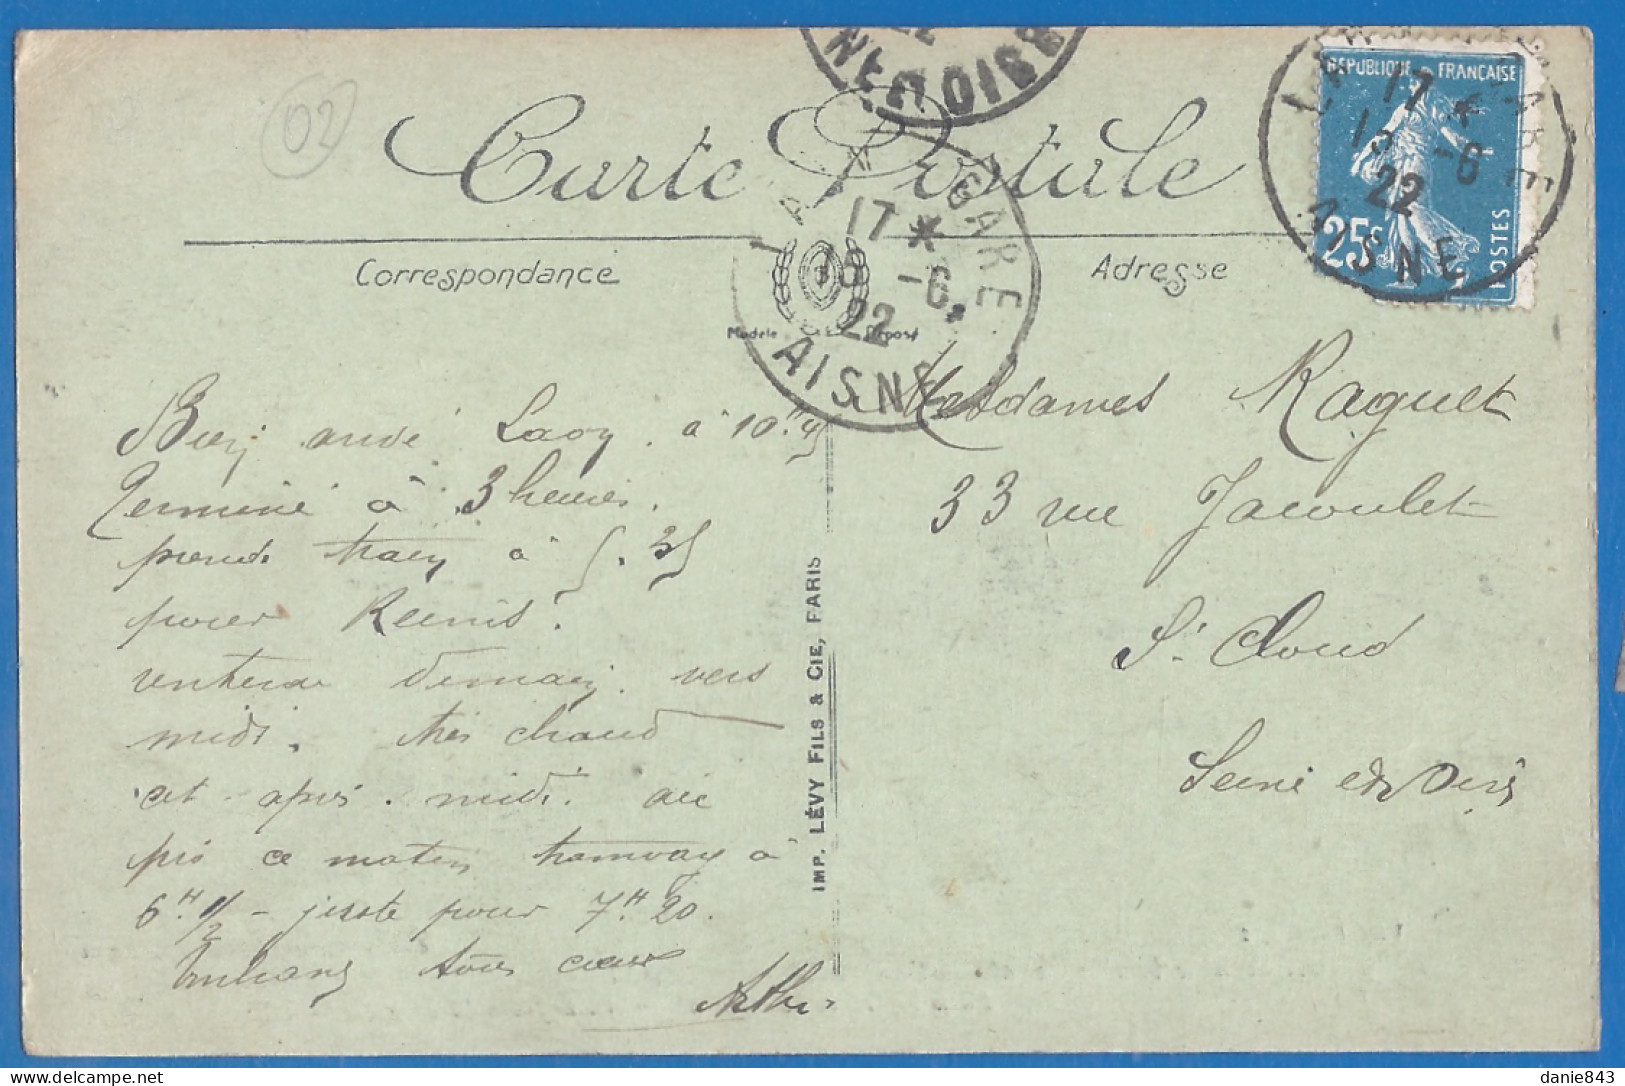 02
Carte Postale
Correspondance
Adresse
Modèle Déposé
RÉPUBLIQUE FRANÇAISE
25c
POSTES
17 *
15 -6
22
AISNE
GARE
17 *
15 -6
22
AISNE
22
Bien arrivé Laon. à 10H45
Terminé à 3 heures.
prends train à 5.35
pour Reims.
rentrerai demain vers
midi. très chaud
cet après-midi. ai
pris ce matin tramway à
6H 1/2 - juste pour 7H 20.
tous coeur
Mesdames Raguet
33 rue Jacoulet
St Cloud
Seine et Oise
IMP. LÉVY FILS & CIE, PARIS
danie843